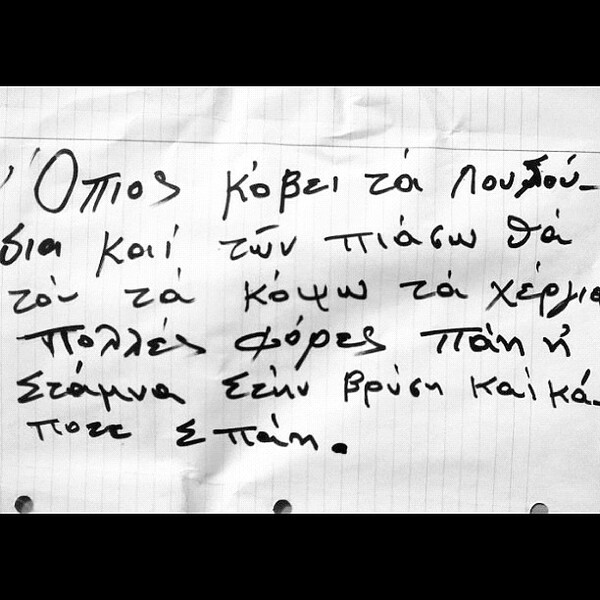 Ὅπιος κόβει τά Λουλού-
δια καί τῶν πιάσω θά
τόν τά κόψω τά χέργια
πολλές φόρες πάη ἡ
στάμνα στήν βρύση καί κά-
ποτε σπάη.